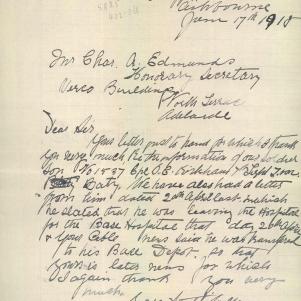 June 17th 1918
Mr Chas. A. Edmunds
Honorary Secretary
Verco Buildings
North Terrace
Adelaide
Dear Sir
Your letter to hand for which I thank
you very much re the information of our Soldier
Son No 1837 Cpl
We have also had a letter
from him dated 20th April last in which
he stated that he was leaving the Hospital
for the Base Hospital that day
& your Cable News said he was transferred
to his Base Depot so that
yours is later news for which
I again thank you very
much